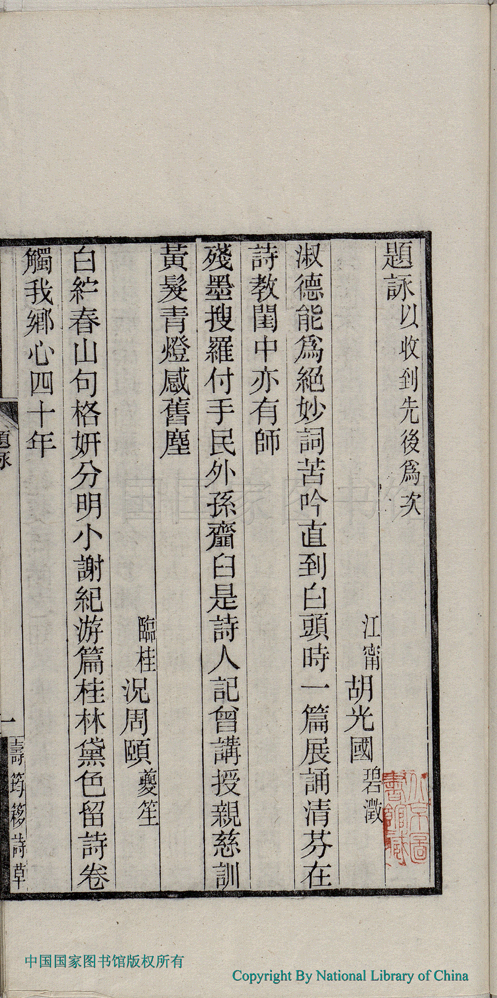 題詠以收到先後為次
江甯胡光國碧澂
淑德能為絕妙詞苦吟直到白頭時一篇展誦清芬在
詩教閨中亦有師
殘墨搜羅付手民外孫齏臼是詩人記曾講授親慈訓
黃髮青燈感舊塵
臨桂況周頤夔笙
白紵春山句格妍分明小謝紀游篇桂林黛色留詩卷
觸我鄉心四十年
題詠
一
壽筠簃詩草
中国国家图书馆版权所有
Copyright By National Library of China